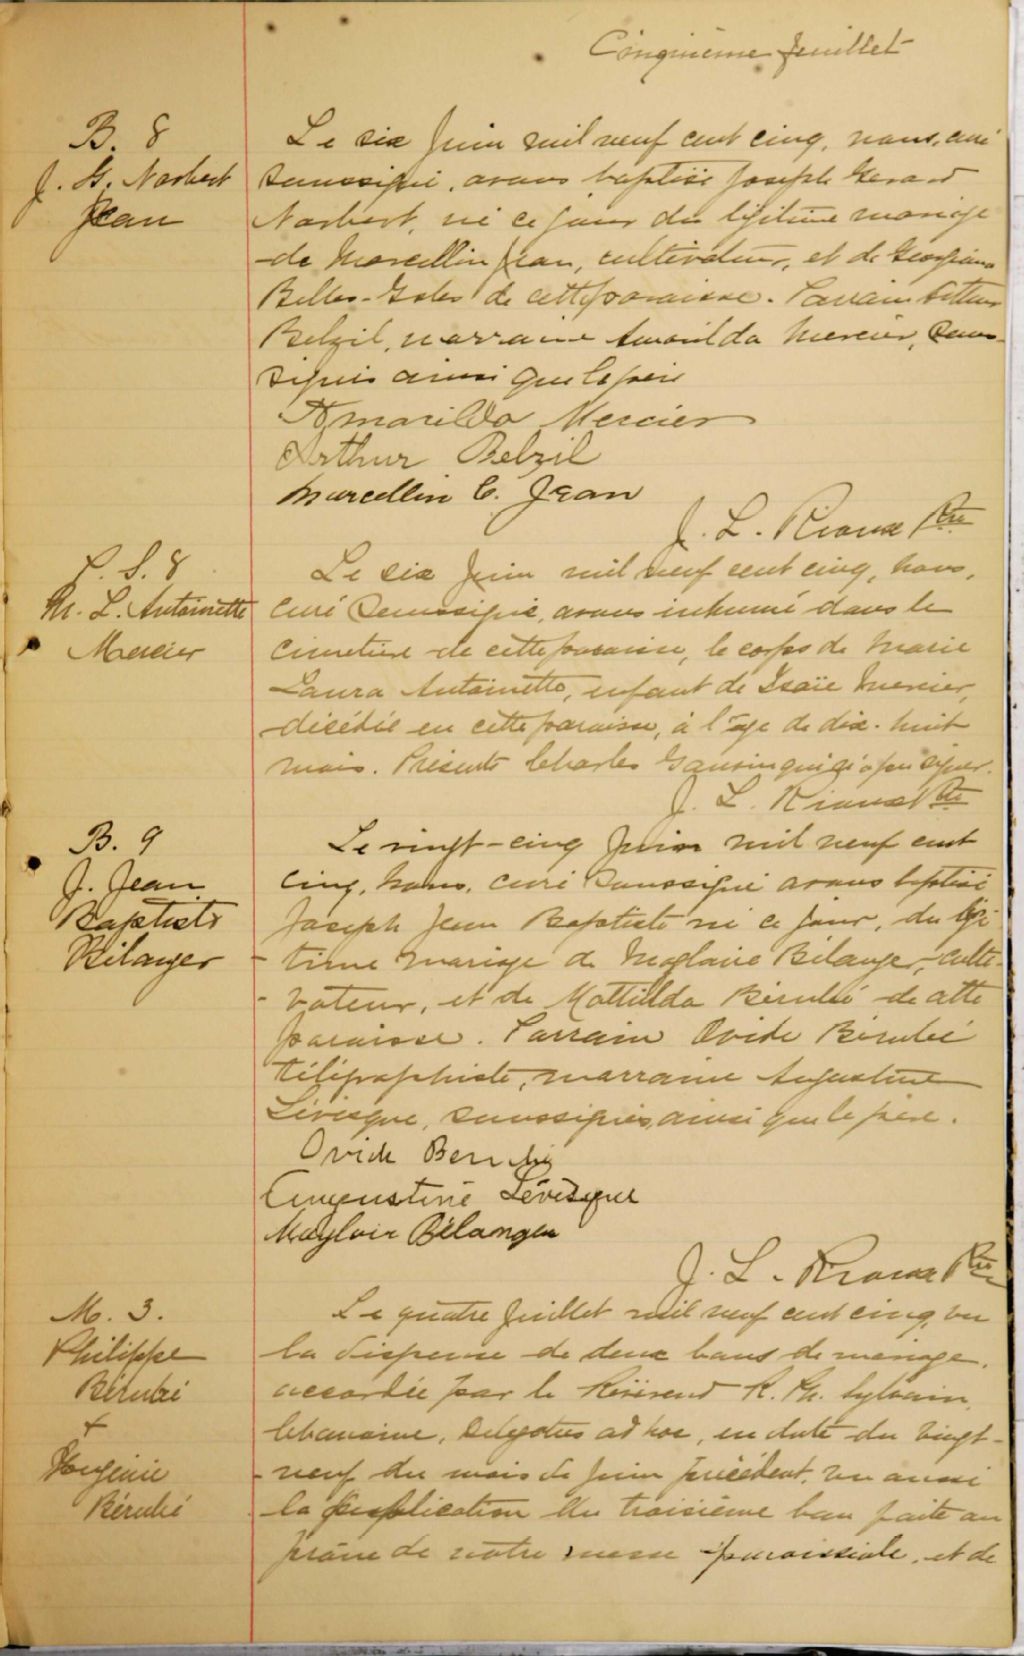 Cinquième feuillet
B. 8
J. G. Norbert
Jean
Le six Juin mil neuf cent cinq, nous, curé
soussigné, avons baptisé Joseph Gerard
Norbert, né ce jour du légitime mariage
de Marcellin Jean, cultivateur, et de Georgiana
Belles-Isles de cette paroisse. Parrain Arthur
Belzil, marraine Amarilda Mercier, sous-
signés ainsi que le père
Amarilda Mercier
Arthur Belzil
Marcellin C. Jean
J. L. Rioux Ptre
S. 8
M. L. Antoinette
Mercier
Le six Juin mil neuf cent cinq, nous,
curé soussigné, avons inhumé dans le
cimetière de cette paroisse, le corps de Marie
Laura Antoinette, enfant de Isaïe Mercier,
décédée en cette paroisse, à l'âge de dix-huit
mois. Présents Charles qui n'a pu signer.
J. L. Rioux Ptre
B. 9
J. Jean
Baptiste
Bélanger
Le vingt-cinq Juin mil neuf cent
cinq, nous, curé soussigné avons baptisé
Joseph Jean Baptiste né ce jour, du légi-
time mariage de Magloire Bélanger, culti-
vateur, et de Mathilda Bérubé de cette
paroisse. Parrain Ovide Bérubé
télégraphiste, marraine Augustine
Lévesque, soussignés, ainsi que le père.
Ovide Berubé
Augustine Lévesque
Magloir Bélanger
J. L. Rioux Ptre
M. 3.
Philippe
Bérubé
+
Eugénie
Bérubé
Le quatre Juillet mil neuf cent cinq, vu
la dispense de deux bans de mariage,
accordée par le Révérend R. Ph. Sylvain,
Chanoine, ad hoc, en date du vingt-
neuf du mois de Juin précédent, vu aussi
la publication du troisième ban faite au
prône de notre messe paroissiale, et de